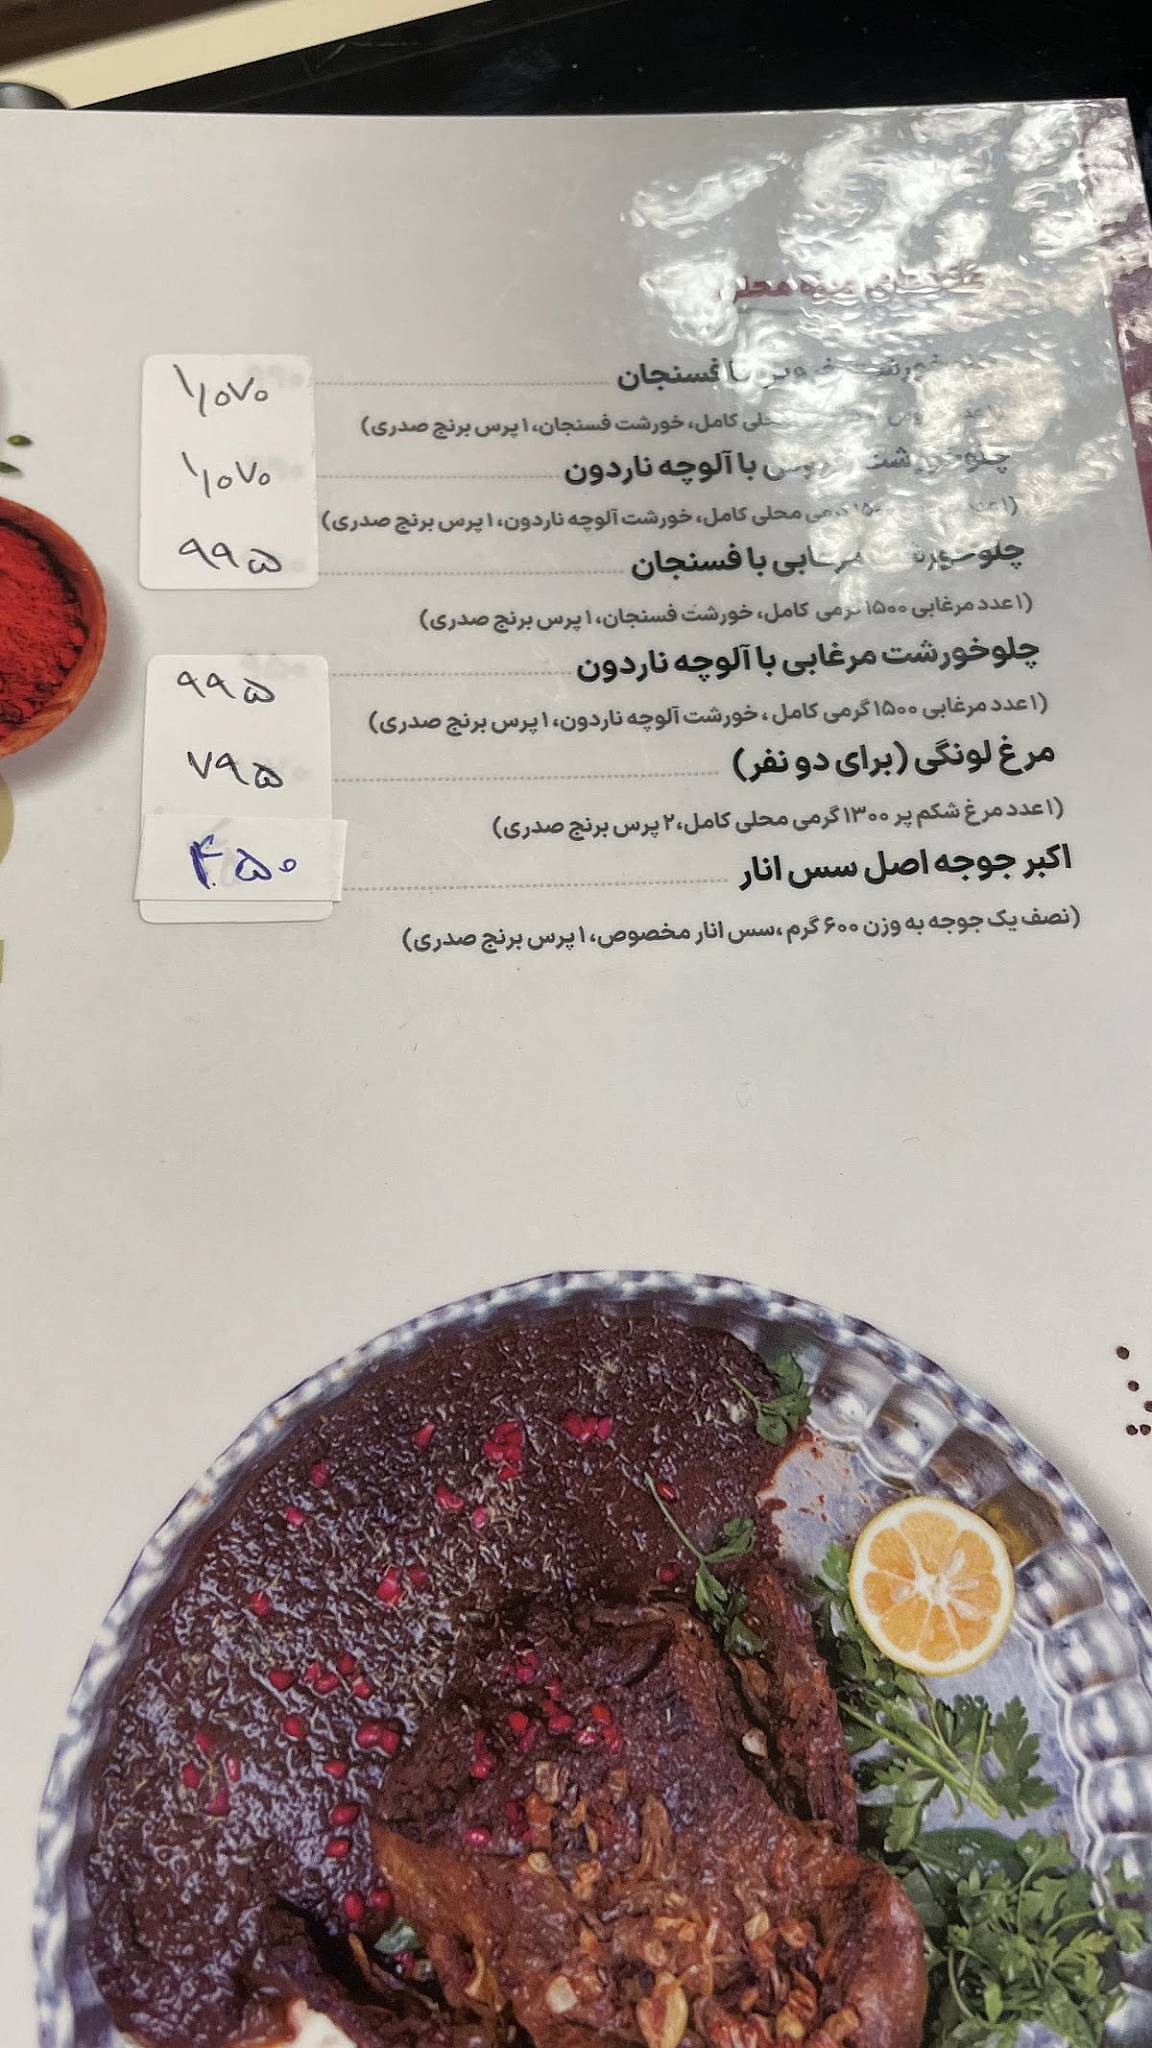 با فسنجان ۱/۰۷۰
محلی کامل، خورشت فسنجان، ۱ پرس برنج صدری)
چلوخورشت خروس با آلوچه ناردون ۱/۰۷۰
(۱ عدد ۱۵۰۰ گرمی محلی کامل، خورشت آلوچه ناردون، ۱ پرس برنج صدری)
چلوخورشت مرغابی با فسنجان ۹۹۵
(۱ عدد مرغابی ۱۵۰۰ گرمی کامل، خورشت فسنجان، ۱ پرس برنج صدری)
چلوخورشت مرغابی با آلوچه ناردون ۹۹۵
(۱ عدد مرغابی ۱۵۰۰ گرمی کامل، خورشت آلوچه ناردون، ۱ پرس برنج صدری)
مرغ لونگی (برای دو نفر) ۷۹۵
(۱ عدد مرغ شکم پر ۱۳۰۰ گرمی محلی کامل، ۲ پرس برنج صدری)
اکبر جوجه اصل سس انار ۴۵۰
(نصف یک جوجه به وزن ۶۰۰ گرم، سس انار مخصوص، ۱ پرس برنج صدری)